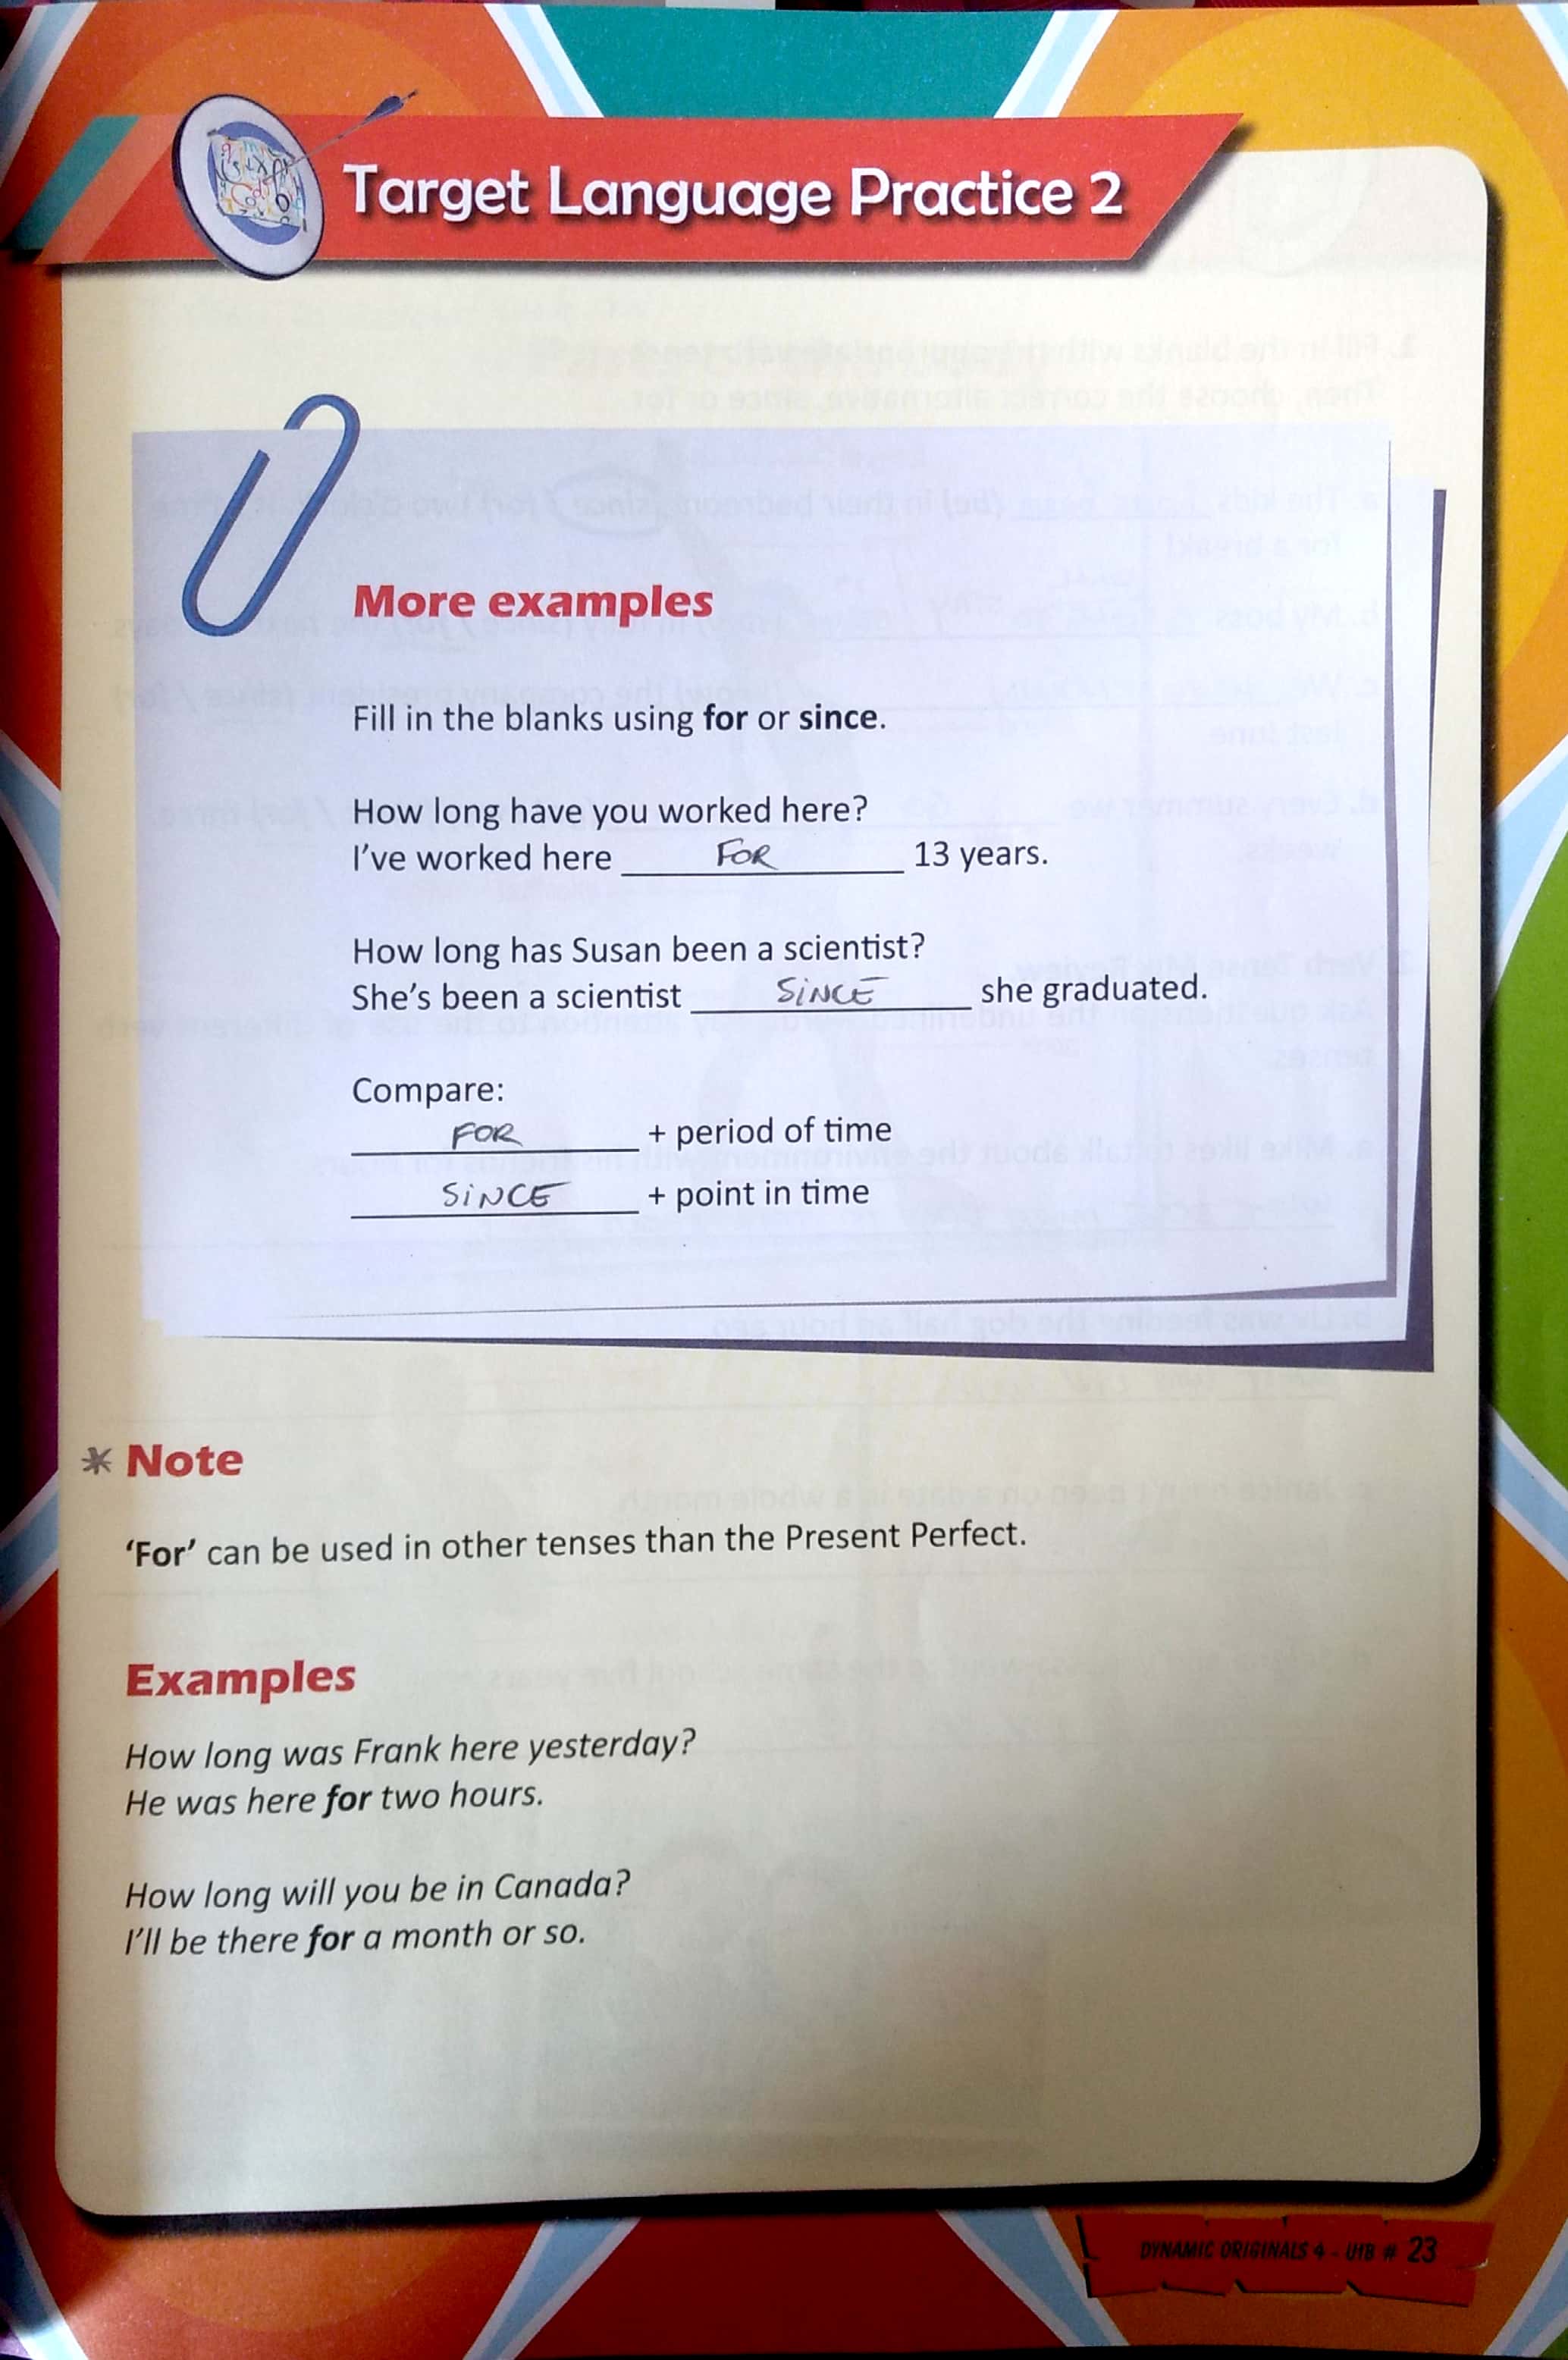 Target Language Practice 2
More examples
Fill in the blanks using for or since.
How long have you worked here?
I've worked here FOR 13 years.
How long has Susan been a scientist?
She's been a scientist SiNCE she graduated.
Compare:
FOR + period of time
SiNCE + point in time
* Note
'For' can be used in other tenses than the Present Perfect.
Examples
How long was Frank here yesterday?
He was here for two hours.
How long will you be in Canada?
I'll be there for a month or so.
DYNAMIC ORIGINALS 4 - U1B # 23